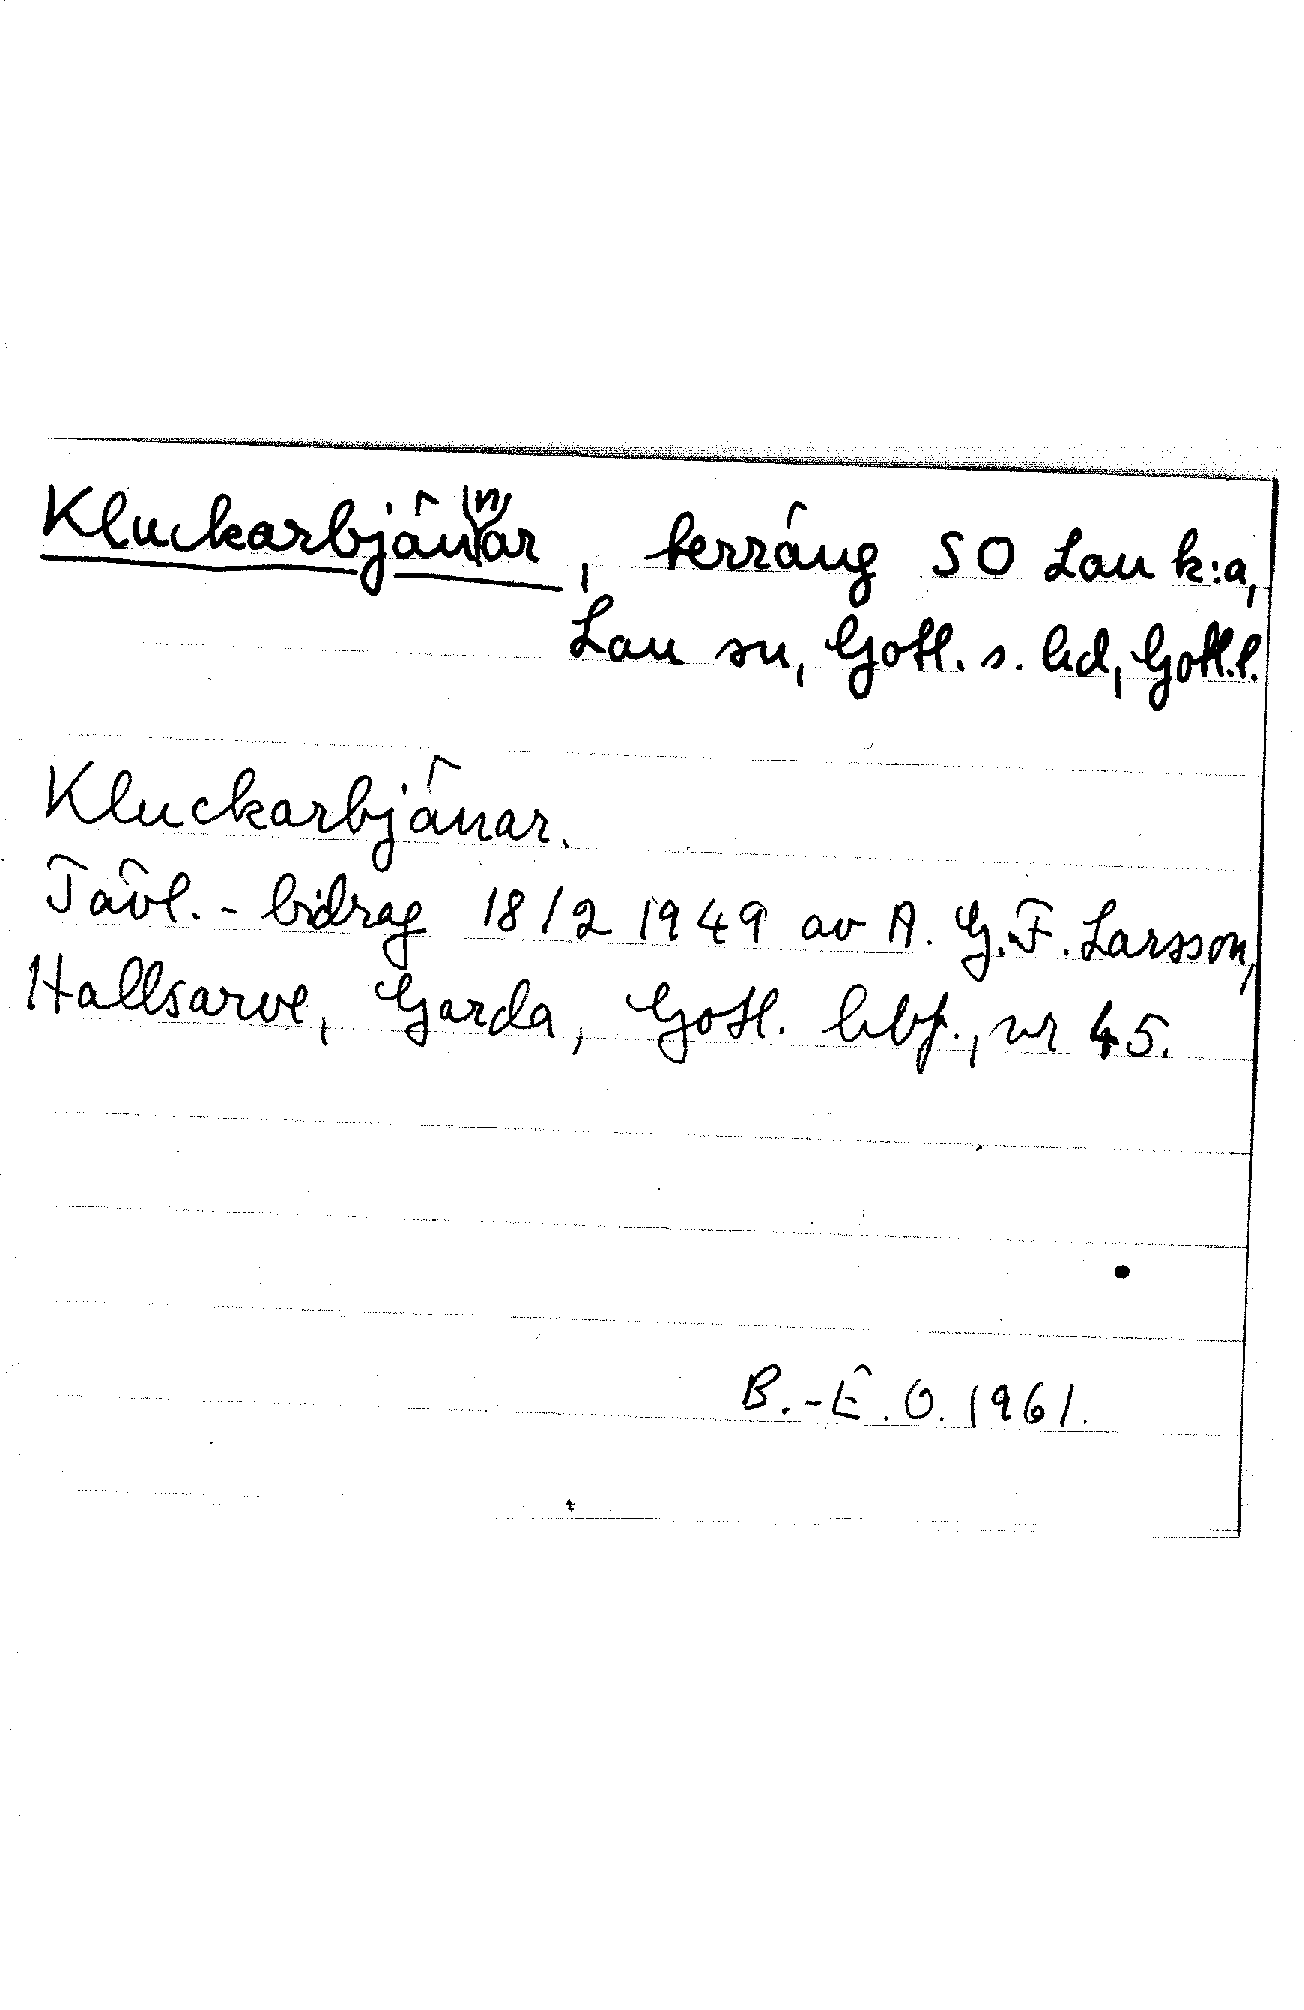 Kluckarbjän(n)ar, terräng SO Lau k:a,
Lau sn, Gotl. s. hd, Gotl.l.
Kluckarbjänar.
Tävl.-bidrag 18/2 1949 av A. G. F. Larsson,
Hallsarve, Garda, Gotl. hbf., nr 45.
B.-E. O. 1961.